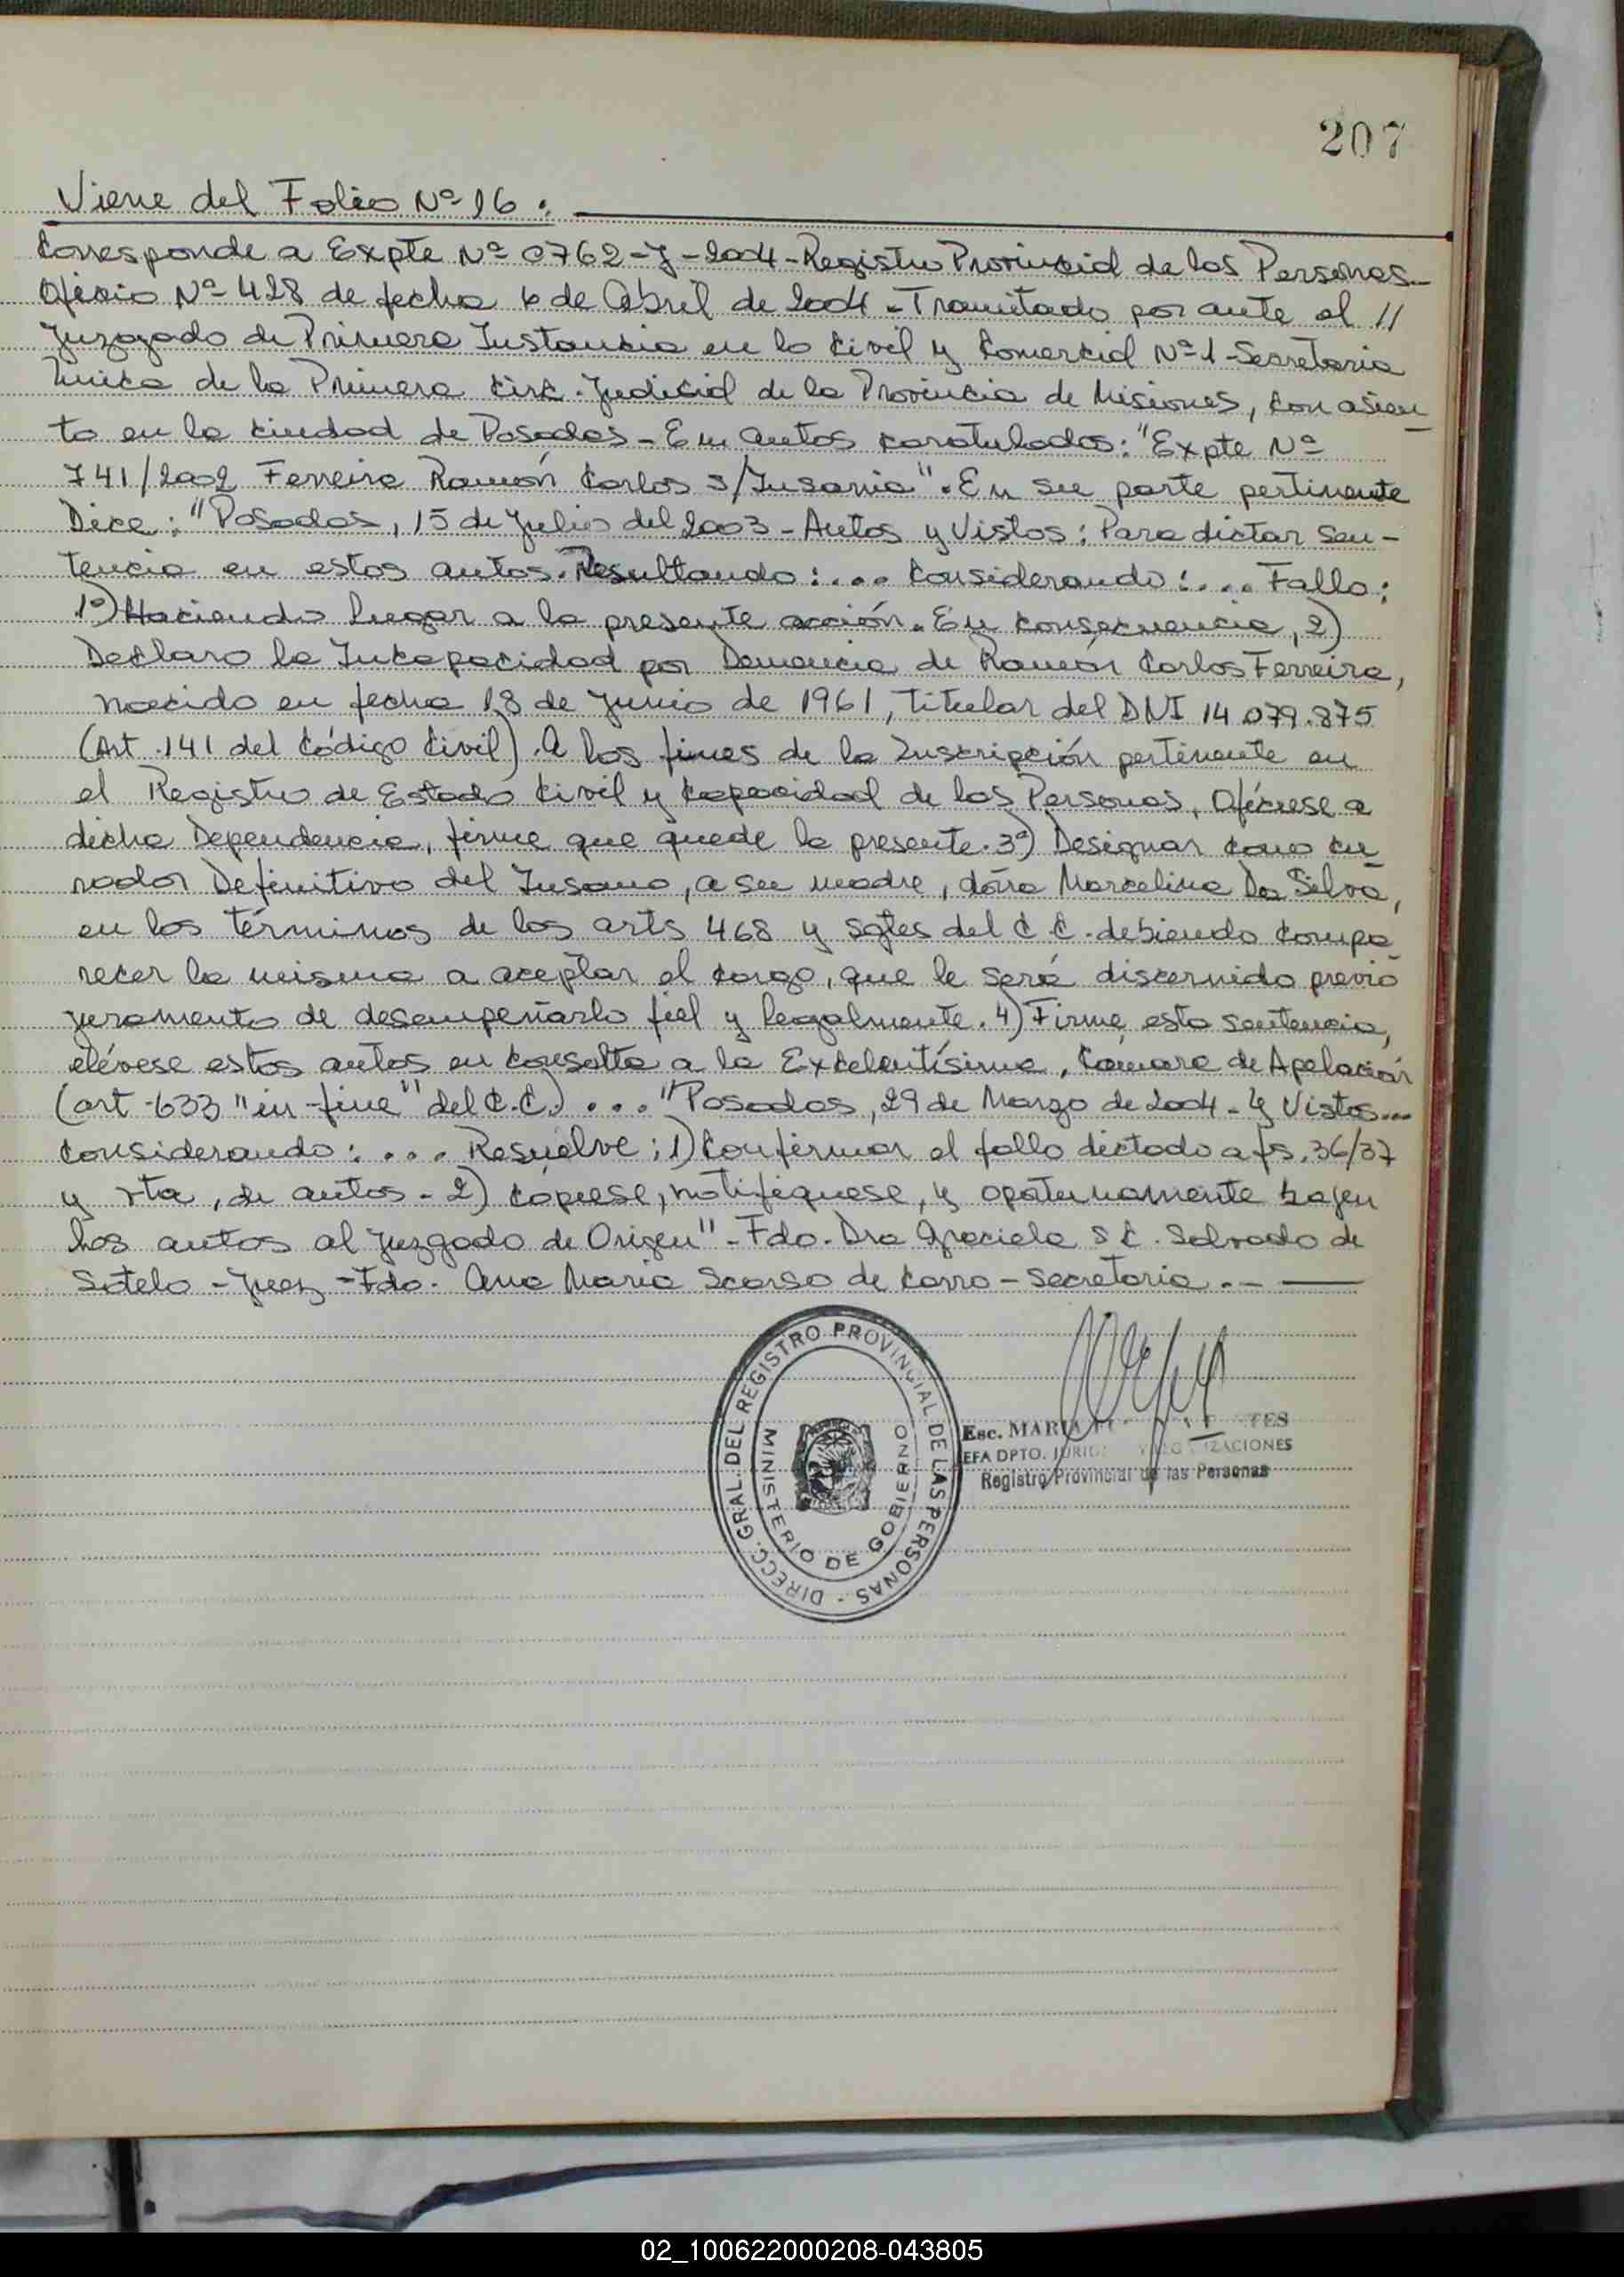 207
Viene del Folio Nº 16 :
Corresponde a Expte Nº 0762-J-2004-Registro Provincial de las Personas-
Oficio Nº 428 de fecha 6 de Abril de 2004-Tramitado por ante el //
Juzgado de Primera Instancia en lo Civil y Comercial Nº 1-Secretaria
Unica de la Primera Circ. Judicial de la Provincia de Misiones, con asien
to en la ciudad de Posadas-En autos caratulados: "Expte Nº
741/2002 Ferreira Ramón Carlos s/Insania". En su parte pertinente
Dice: "Posadas, 15 de Julio del 2003-Autos y Vistos: Para dictar sen-
tencia en estos autos. Resultando:... Considerando:.... Fallo:
1º) Haciendo lugar a la presente acción. En consecuencia, 2)
Declaro la Incapacidad por Demencia de Ramón Carlos Ferreira,
nacido en fecha 18 de Junio de 1961, titular del DNI 14.079.875
(Art. 141 del Código Civil). A los fines de la Inscripción pertinente en
el Registro de Estado Civil y Capacidad de las Personas, Ofíciese a
dicha Dependencia, firme que quede la presente. 3º) Designar como cu
rador Definitivo del Insano, a su madre, doña Marcelina Da Silva,
en los términos de los arts 468 y sgtes del C.C. debiendo compa
recer la misma a aceptar el cargo, que le será discernido previo
juramento de desempeñarlo fiel y legalmente. 4) Firme, esta sentencia,
elévese estos autos en consulta a la Excelentísima, Cámara de Apelación
(art-633 "in-fine" del C.C.).... "Posadas, 29 de Marzo de 2004-Y Vistos...
Considerando:.... Resuelve: 1) Confirmar el fallo dictado a fs. 36/37
y vta, de autos-2) Cópiese, notifíquese, y oportunamente bajen
los autos al juzgado de Origen"-Fdo. Dra Graciela S C. Salvado de
Sotelo-Juez-Fdo. Ana Maria Scarso de Carro-Secretaria.-
DIRECC. GRAL. DEL REGISTRO PROVINCIAL DE LAS PERSONAS -
MINISTERIO DE GOBIERNO
Esc. MARIA
EFA DPTO.
Registro Provincial de las Personas
02_100622000208-043805